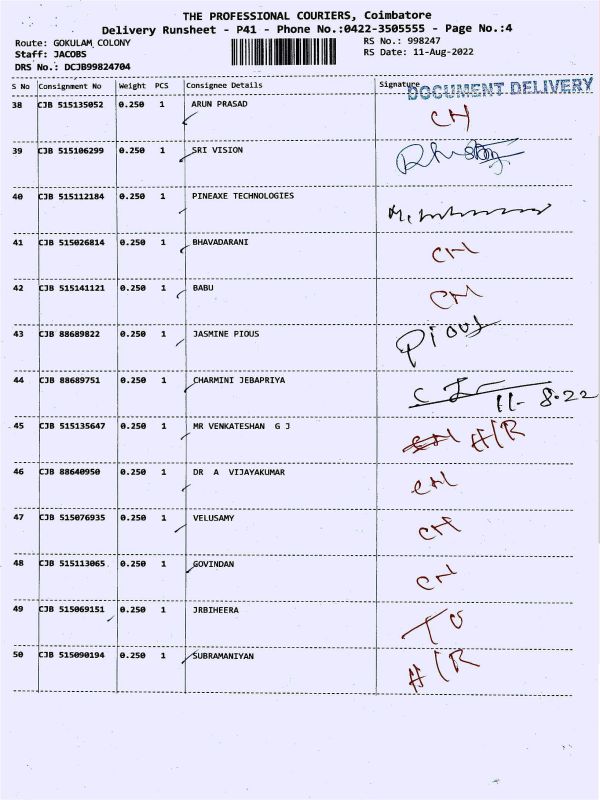 THE PROFESSIONAL COURIERS, Coimbatore
Delivery Runsheet - P41 - Phone No.:0422-3505555 - Page No.:4
Route: GOKULAM COLONY RS No.: 998247
Staff: JACOBS RS Date: 11-Aug-2022
DRS No.: DCJB99824704
S No Consignment No Weight PCS Consignee Details Signature DOCUMENT DELIVERY
38 CJB 515135052 0.250 1 ARUN PRASAD CH
39 CJB 515106299 0.250 1 SRI VISION
40 CJB 515112184 0.250 1 PINEAXE TECHNOLOGIES
41 CJB 515026814 0.250 1 BHAVADARANI CH
42 CJB 515141121 0.250 1 BABU CH
43 CJB 88689822 0.250 1 JASMINE PIOUS Pious
44 CJB 88689751 0.250 1 CHARMINI JEBAPRIYA 11-8.22
45 CJB 515135647 0.250 1 MR VENKATESHAN G J H/R
46 CJB 88640950 0.250 1 DR A VIJAYAKUMAR CH
47 CJB 515076935 0.250 1 VELUSAMY CH
48 CJB 515113065 0.250 1 GOVINDAN CH
49 CJB 515069151 0.250 1 JRBIHEERA TO
50 CJB 515090194 0.250 1 SUBRAMANIYAN H/R